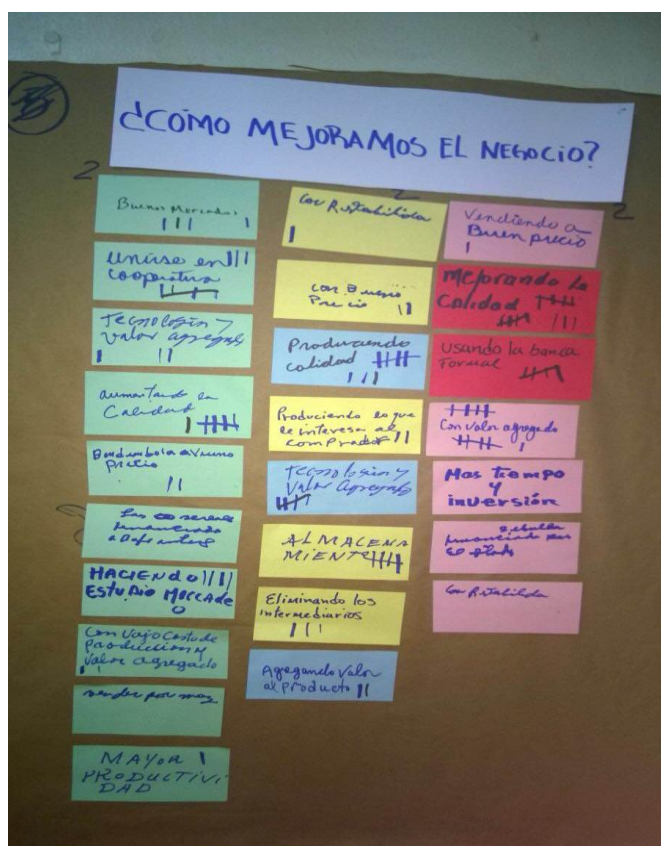 ¿CÓMO MEJORAMOS EL NEGOCIO?
2
Buenos Mercados
Unirse en
Cooperativa
Tecnologia y
valor agregado
aumentando la
Calidad
precio
financiado
HACIENDO
ESTUDIO MERCADO
Con Vajo Costo de
Produccion y
Valor agregado
vender por
MAYOR
PRODUCTIVI-
DAD
2
Con Rentabilidad
con Bueno
Precio
Produciendo
calidad
Produciendo lo que
le interesa al
comprador
Tecnologia y
Valor Agregado
ALMACENA
MIENTO
Eliminando los
intermediarios
Agregando Valor
al producto
2
Vendiendo a
Buen precio
Mejorando la
Calidad
Usando la banca
Formal
Con valor agregado
Mas tiempo
y
inversión